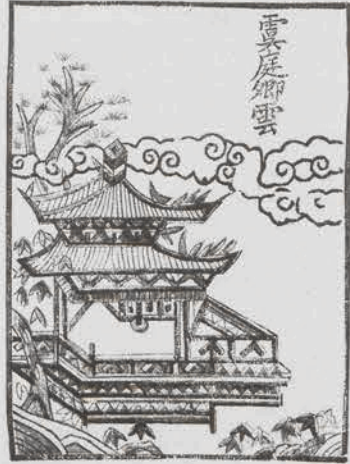 虞庭卿雲